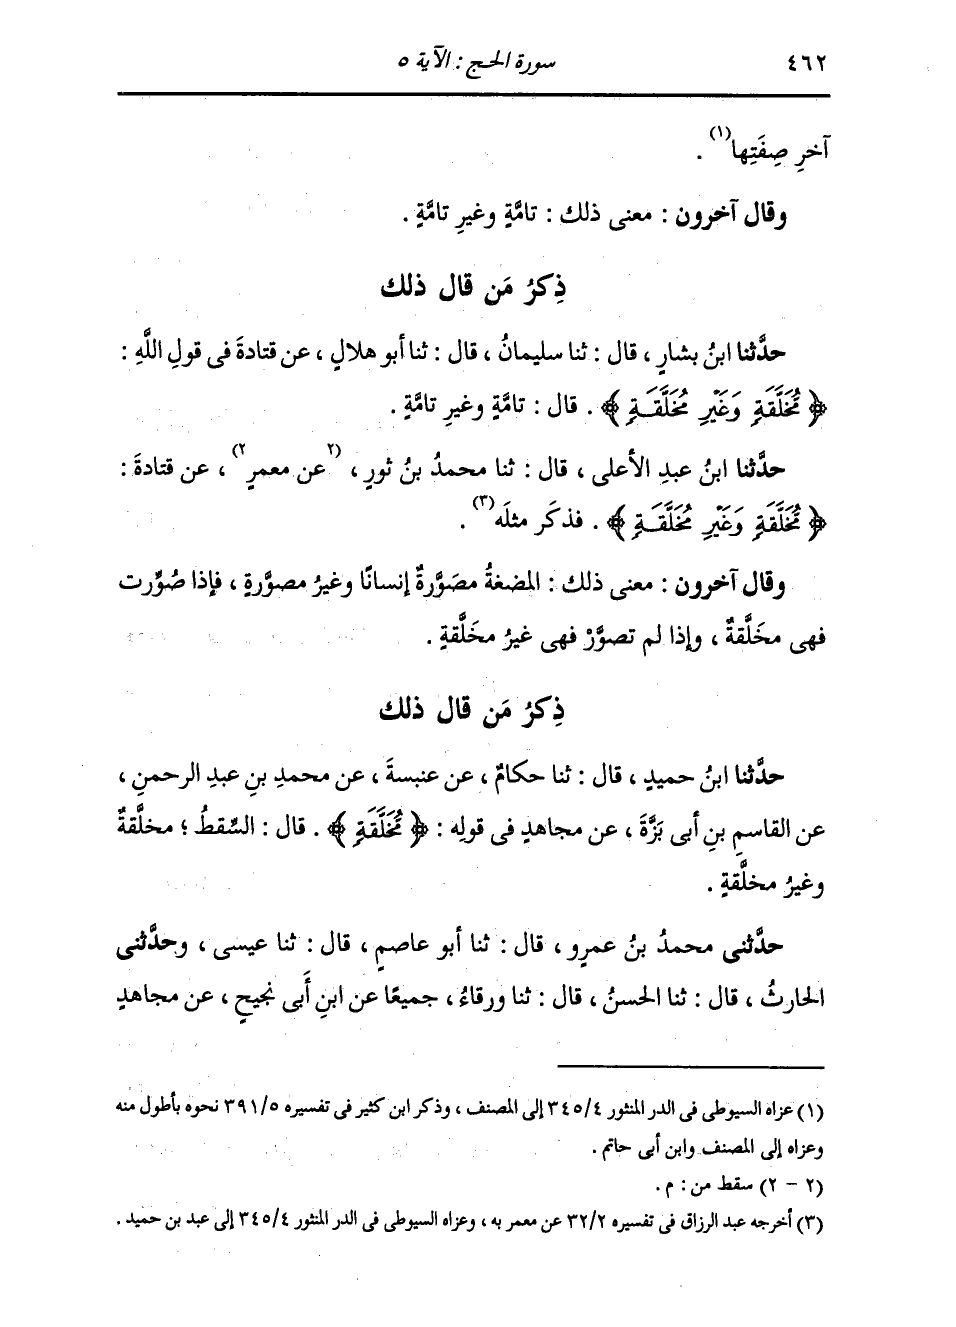 ٤٦٢ سورة الحج : الآية ٥
آخرِ صِفَتِها(١) .
وقال آخرون : معنى ذلك : تامَّةٍ وغيرِ تامَّةٍ .
ذِكرُ مَن قال ذلك
حدَّثنا ابنُ بشارٍ ، قال : ثنا سليمانُ ، قال : ثنا أبو هلالٍ ، عن قتادةَ فى قولِ اللَّهِ :
﴿ مُّخَلَّقَةٍ وَغَيْرِ مُخَلَّقَةٍ ﴾ . قال : تامَّةٍ وغيرِ تامَّةٍ .
حدَّثنا ابنُ عبدِ الأعلى ، قال : ثنا محمدُ بنُ ثورٍ ، (٢عن معمرٍ٢) ، عن قتادةَ :
﴿ مُّخَلَّقَةٍ وَغَيْرِ مُخَلَّقَةٍ ﴾ . فذكَر مثلَه(٣) .
وقال آخرون : معنى ذلك : المضغةُ مصَوَّرةٌ إنسانًا وغيرُ مصوَّرةٍ ، فإذا صُوِّرت
فهى مخَلَّقةٌ ، وإذا لم تصوَّرْ فهى غيرُ مخَلَّقةٍ .
ذِكرُ مَن قال ذلك
حدَّثنا ابنُ حميدٍ ، قال : ثنا حكامٌ ، عن عنبسةَ ، عن محمدِ بنِ عبدِ الرحمنِ ،
عن القاسمِ بنِ أبى بَزَّةَ ، عن مجاهدٍ فى قولِه : ﴿ مُّخَلَّقَةٍ ﴾ . قال : السِّقطُ ؛ مخلَّقةٌ
وغيرُ مخلَّقةٍ .
حدَّثنى محمدُ بنُ عمرٍو ، قال : ثنا أبو عاصمٍ ، قال : ثنا عيسى ، وحدَّثنى
الحارثُ ، قال : ثنا الحسنُ ، قال : ثنا ورقاءُ ، جميعًا عن ابنِ أبى نجيحٍ ، عن مجاهدٍ
(١) عزاه السيوطى فى الدر المنثور ٣٤٥/٤ إلى المصنف ، وذكر ابن كثير فى تفسيره ٣٩١/٥ نحوه بأطول منه
وعزاه إلى المصنف وابن أبى حاتم .
(٢ - ٢) سقط من : م .
(٣) أخرجه عبد الرزاق فى تفسيره ٣٢/٢ عن معمر به ، وعزاه السيوطى فى الدر المنثور ٣٤٥/٤ إلى عبد بن حميد .